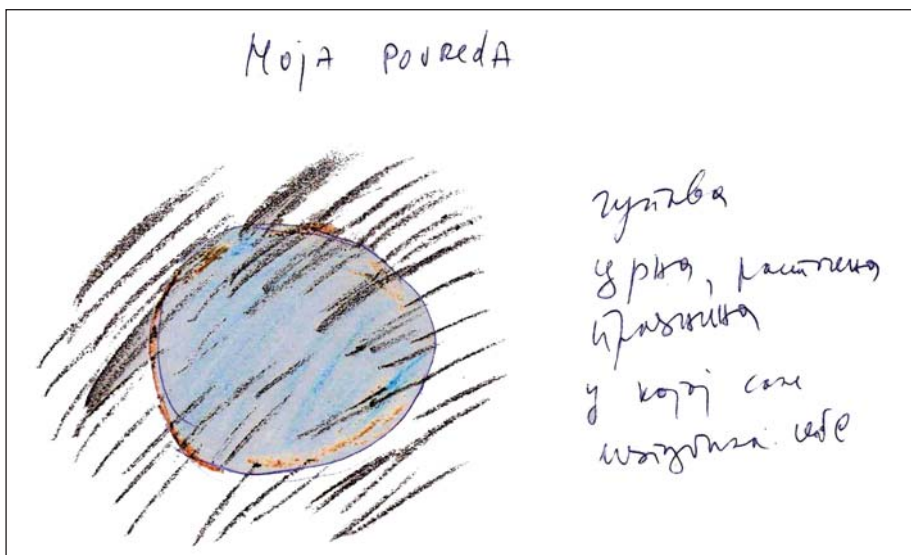 Moja povreda
црна, расточена
празнина
у којој сам
изгубила себе